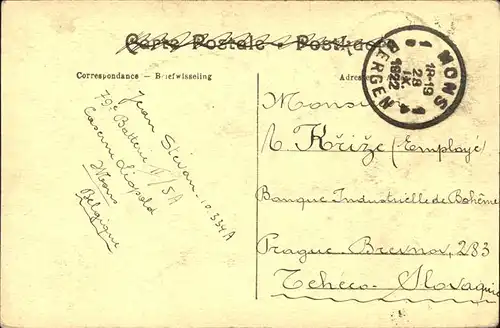 Carte Postale - Postkaart
Correspondance — Briefwisseling
Adresse
MONS
18-19
28
IX
1922
BERGEN
Jean Stévan. 10.334A
79e Batterie II/5A
Casern Léopold
Mons
Belgique
Monsieur
Křiže (Employé
Banque Industrielle de Bohême
Prague Brevnov, 283
Tchéco-Slovaquie